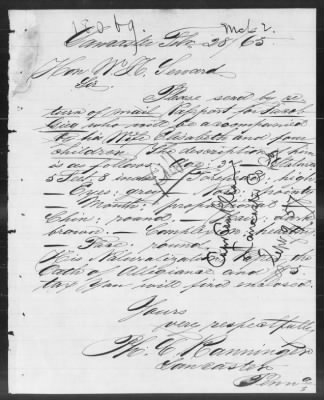 18069.
Mch 2.
Lancaster Feb. 28/65
Hon. Wm H. Seward
Sir
Please send by re-
turn of mail Passport for
who will be accompanied
by his Wife Elizabeth and four
children. The description of him
is as follows Age: 37 Stature
5 Feet 8 inches Forehead: high
Eyes: grey Nose: pointed
Mouth: proportioned
Chin: round Hair: dark
brown Complexion: healthy
Face: round
His Naturalization the
Oath of Allegiance and $5
tax you will find inclosed.
Yours
very respectfully
Ph. E. Ranninger
Lancaster
Penna
Lancaster Co Pa